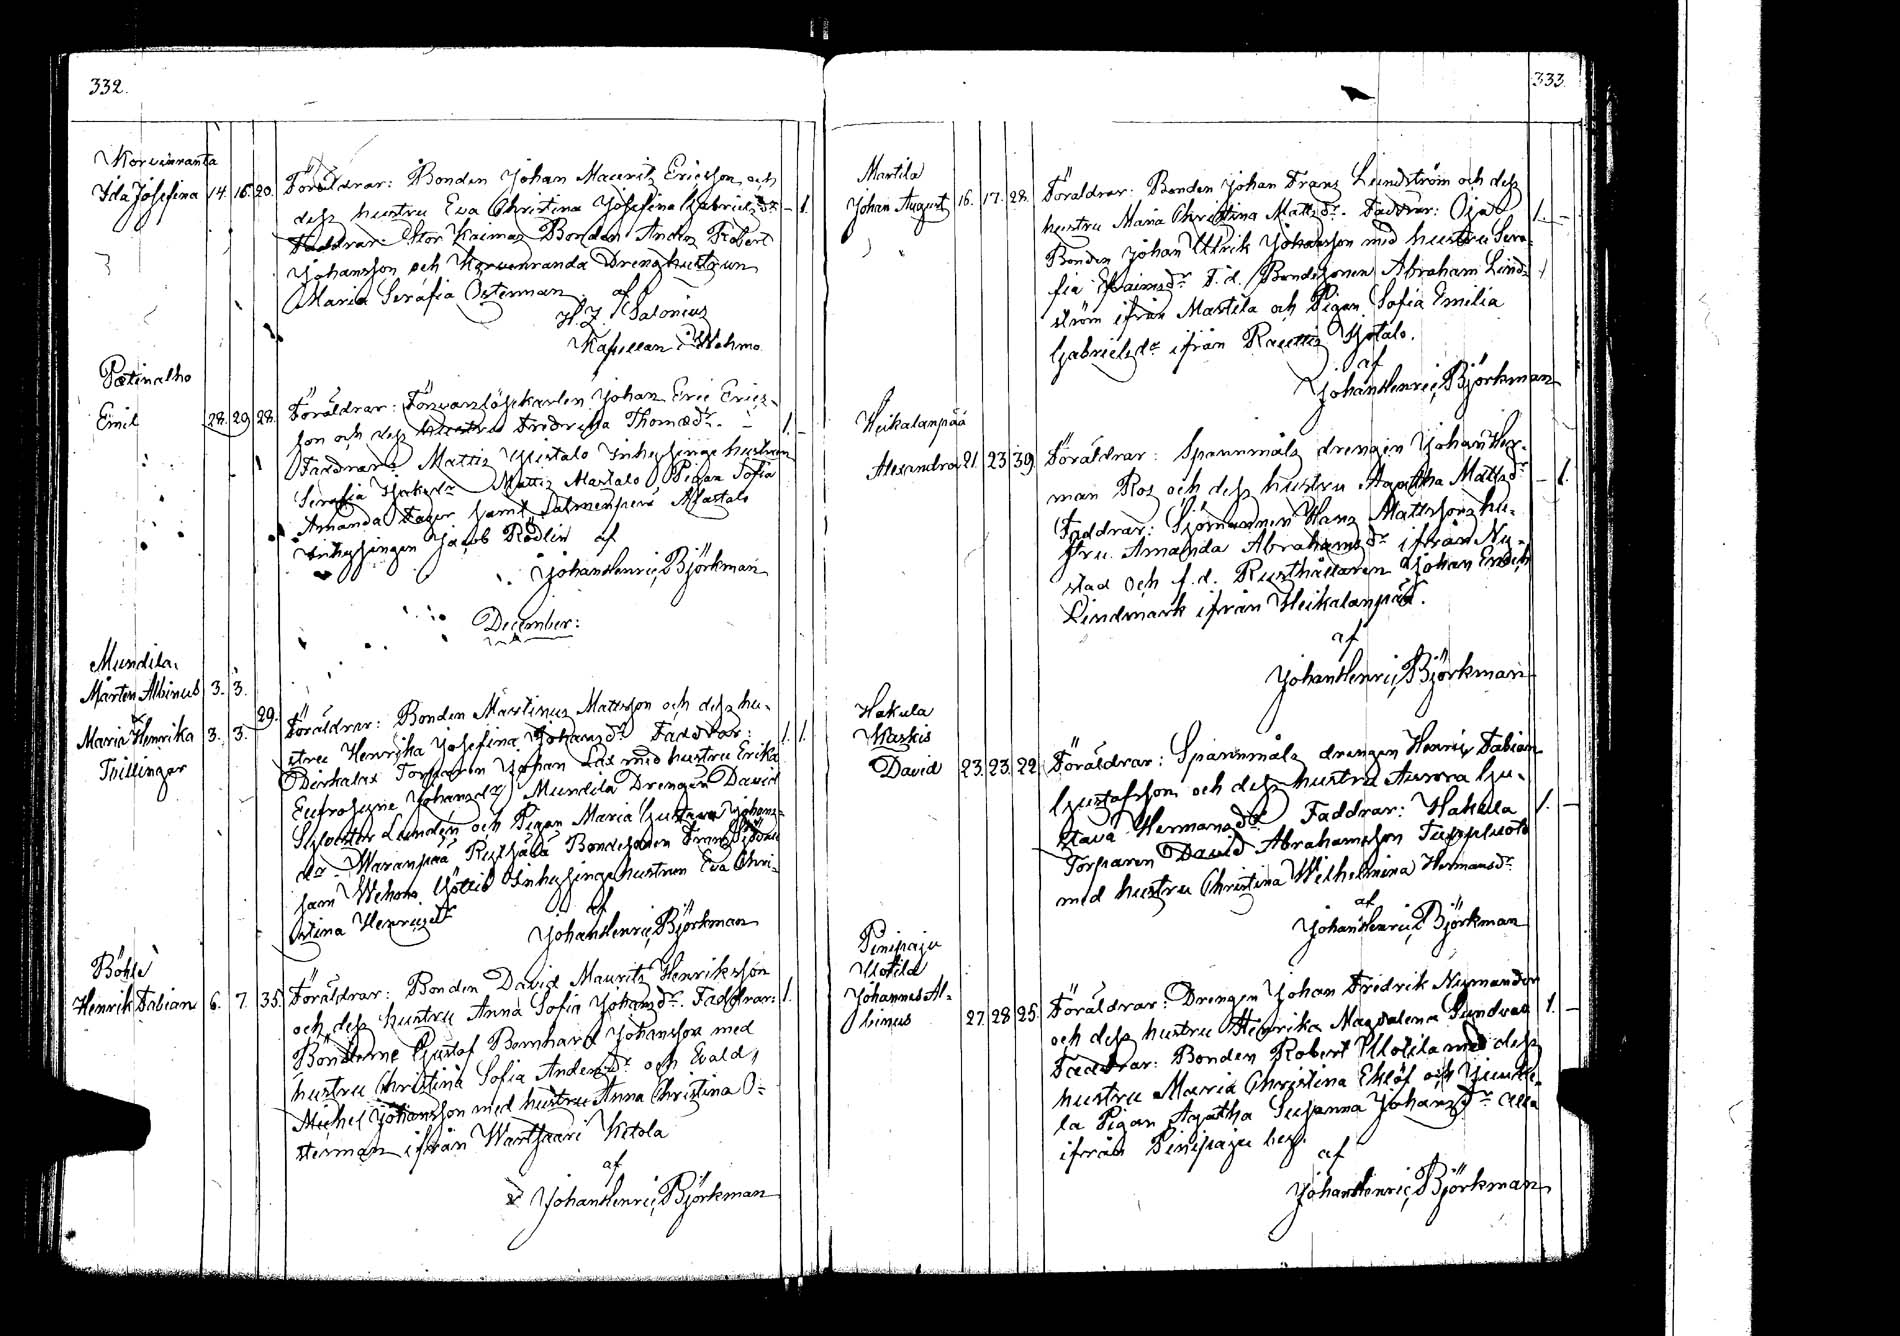 332.
Korvenranta
Ida Josefina 14. 16. 20. Föräldrar: Bonden Johan Mauritz Ericsson och
dess hustru Eva Christina Josefina Gabrielsdr. – 1.
Faddrar: Stor Kaimas Bonden Anders Robert
Johansson och Korvenranda Drenghustrun
Maria Serafia Osterman. af
H. J. Salonius
Kapellan i Wehmo.
Pætinalho
Emil 28. 29. 28. Föräldrar: Försvarslösekarlen Johan Eric Erics-
son och dess hustru Fredericka Thomædr. – 1. –
Faddrar: Mattis Yli[?]talo Inhysinge hustrun
Serafia Mattis Alastalo Pigan Sofia
Amanda Fager samt Salmenperä Alastalo
Inhysingen Jacob Rödlin af
Johan Henric Björkman
December:
Mundila.
Mårten Albinus 3. 3.
&
29. Föräldrar: Bonden Martinus Mattsson och dess hu-
Maria Henrika 3. 3. stru Henrika Josefina Johansdr. Faddrar: 1. 1.
Tvillingar Pirkalax Torparen Johan Lax med hustru Erika
Eufrosyne Johansdr, Mundila Drengen David
Sylvester Lundén och Pigan Maria Gustava Johans-
dr. Waranpää Bondesonen Frans
sam Wehmo Inhysinge hustrun Eva Chri-
stina Henricsdr
af
Johan Henric Björkman
Böhle
Henrik Fabian 6. 7. 35. Föräldrar: Bonden David Mauritz Henriksson
och dess hustru Anna Sofia Johansdr. Faddrar: 1.
Bönderne Gustaf Bernhard Johansson med
hustru Christina Sofia Andersdr. och Evald
Michel Johansson med hustru Anna Christina O-
sterman ifrån Wartsaari Ketola
af
Johan Henric Björkman
333.
Martila
Johan August 16. 17. 28. Föräldrar: Bonden Johan Frans Lundström och dess
hustru Maria Christina Mattsdr. Faddrar: Oja 1. –
Bonden Johan Ulrik Johansson med hustru Sera-
fia Efraimsdr. F.d. Bondesonen Abraham Lind-
ström ifrån Martila och Pigan Sofia Emilia
Gabrielsdr ifrån Raettis Ylötalo.
af
Johan Henric Björkman
Heikalanpää
Alexandra 21. 23. 39. Föräldrar: Spannmåls drengen Johan Her-
man Ros och dess hustru Agatha Mattsdr. – 1.
Faddrar: Sjömannen Hans Mattssons hu-
stru Amanda Abrahamsdr. ifrån Ny-
stad och f.d. Rusthållaren Johan Erich
Lindmark ifrån Heikalanpää.
af
Johan Henric Björkman
Hakula
Waskis
David 23. 23. 22. Föräldrar: Spannmåls drengen Henric Fabian
Gustafsson och dess hustru Aurora Gu-
stava Hermansdr. Faddrar: Hakula 1. –
Torparen David Abrahamsson Tuppluoto
med hustru Christina Wilhelmina Hermansdr.
af
Johan Henric Björkman
Pinipaju
Uotila
Johannes Al-
binus 27. 28. 25. Föräldrar: Drengen Johan Fredrik Nymander
och dess hustru Henrika Magdalena Sundvas 1. –
Faddrar: Bonden Robert Uotila med dess
hustru Maria Christina Eklöf och
la Pigan Agatha Susanna Johansdr. alla
ifrån Pinipaju by.
af
Johan Henric Björkman